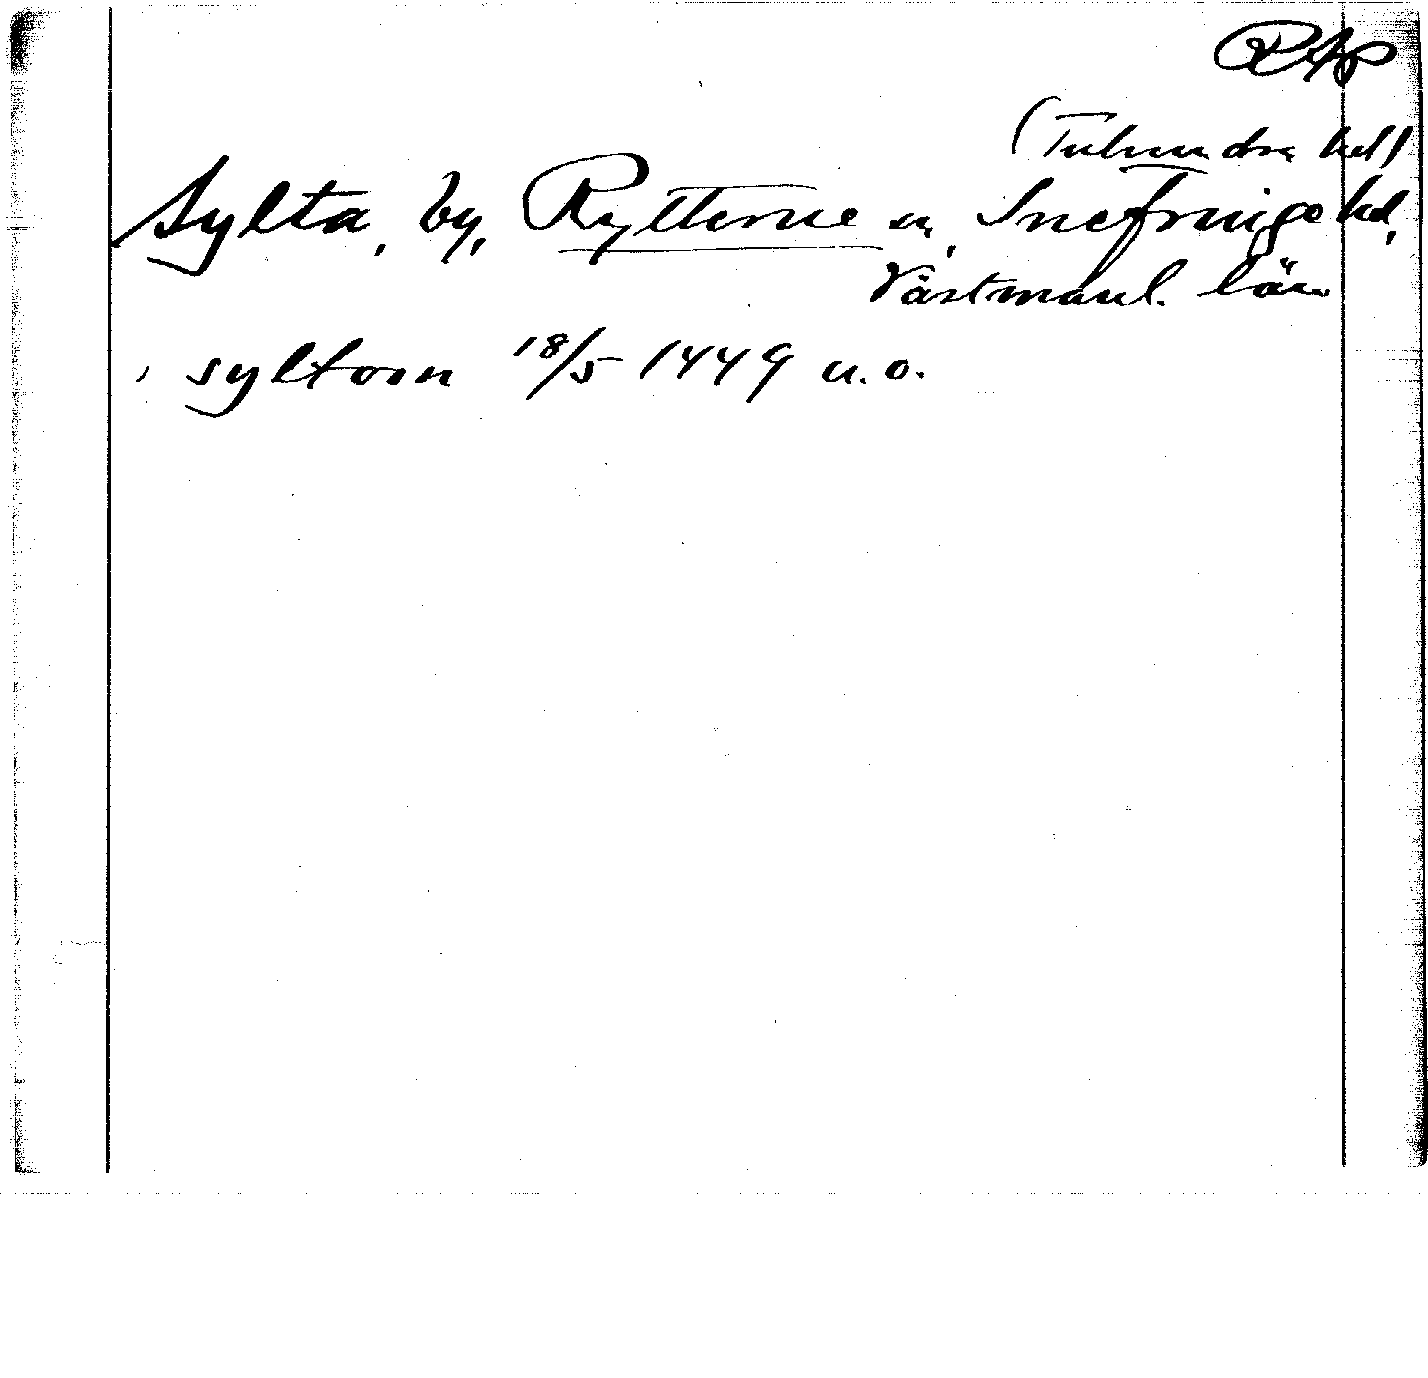 RAp
(Tuhundra hd)
Sylta, by, Rytterne sn, Snefringe hd,
Västmanl. län
i syltom 18/5 1449 u.o.